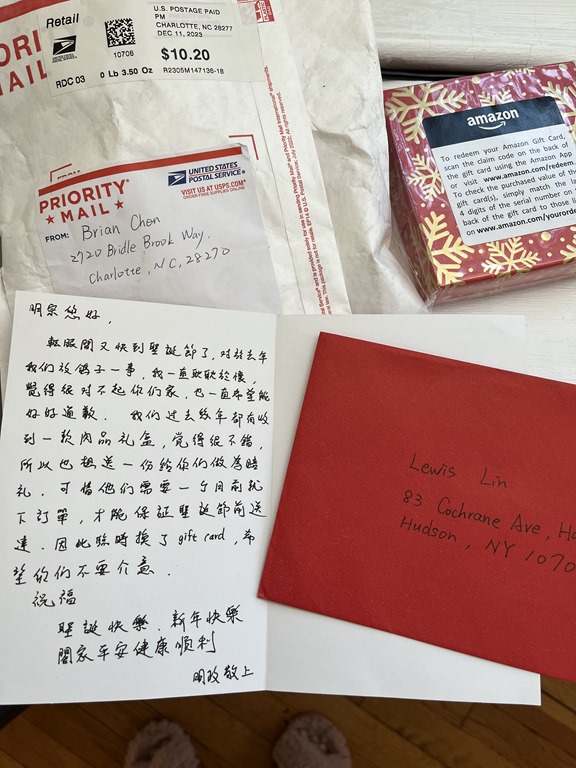 Retail
U.S. POSTAGE PAID
PM
CHARLOTTE, NC 28277
DEC 11, 2023
10706
$10.20
RDC 03
0 Lb 3.50 Oz
R2305M147136-18
MAIL
FROM:
PRIORITY
★ MAIL ★
UNITED STATES
POSTAL SERVICE®
VISIT US AT USPS.COM®
ORDER FREE SUPPLIES ONLINE
FROM: Brian Chen
2720 Bridle Brook Way.
Charlotte, NC, 28270
amazon
To redeem your Amazon Gift Card,
scan the claim code on the back of
the gift card using the Amazon App
or visit www.amazon.com/redeem
To check the purchased value of th
gift card(s), simply match the l
4 digits of the serial number on
back of the gift card to those li
on www.amazon.com/yourord
明宗您好,
転眼間又快到聖誕節了, 对於去年
我們放鴿子一事, 我一直耿耿於懷,
覺得很对不起你們家, 也一直希望能
好好道歉. 我們过去幾年都有收
到一款肉品礼盒, 覺得很不錯,
所以也想送一份給你們做為賠
礼. 可惜他們需要一个月前就
下訂單, 才能保証聖誕節前送
達. 因此臨時換了 gift card, 希
望你們不要介意.
祝福
聖誕快樂. 新年快樂
闔家平安健康順利
明玫敬上
Lewis Lin
83 Cochrane Ave, Ha
Hudson, NY 1070